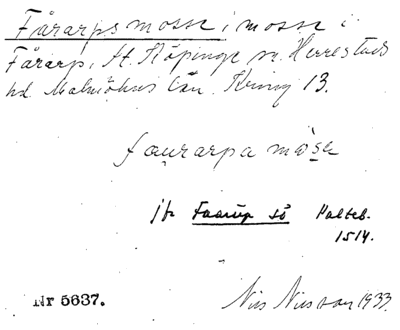 Fårarps mosse, mosse i
Fårarp, St. Köpinge sn. Herrestads
hd. Malmöhus län. Kring 13.
faurarpa måse
jfr Faarup sö Palteb.
1514.
Nr 5637. Nils Nilsson 1933.